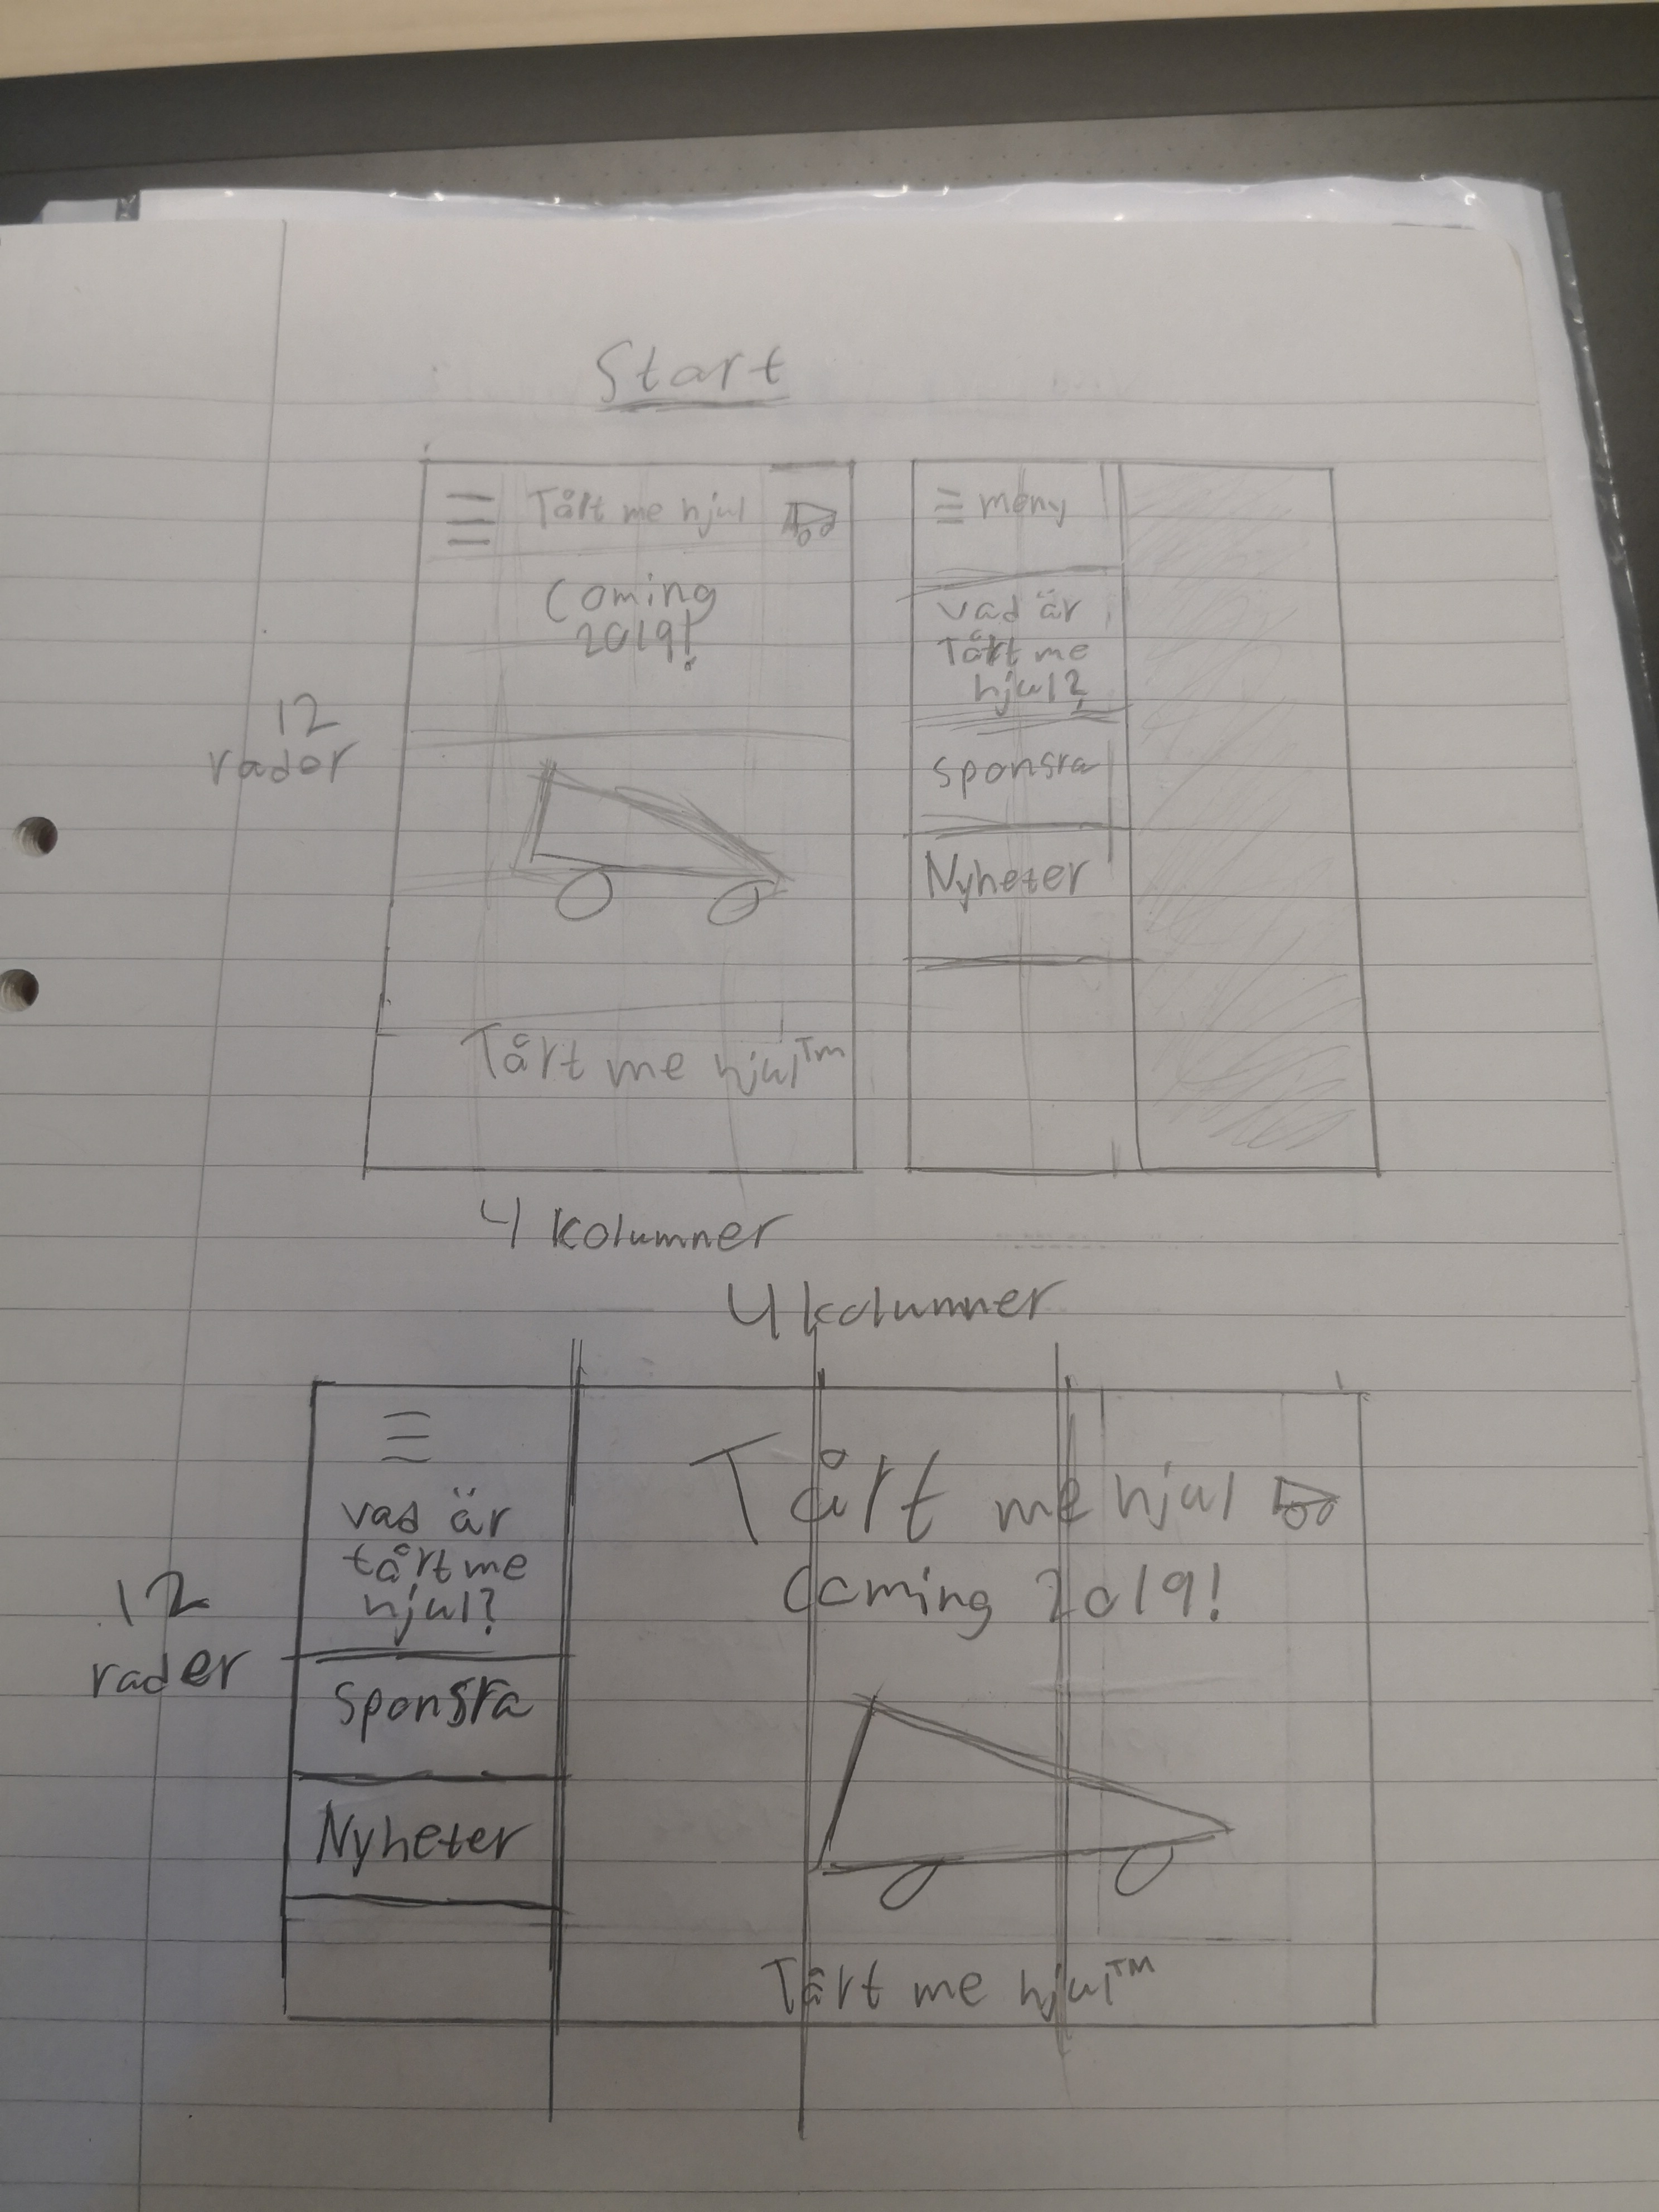 Start
Tårt me hjul
Coming
2019!
12
rader
Tårt me hjul™
meny
vad är
Tårt me
hjul?
sponsra
Nyheter
4 kolumner
4 kolumner
vad är
tårt me
hjul?
Sponsra
Nyheter
12
rader
Tårt me hjul
Coming 2019!
Tårt me hjul™